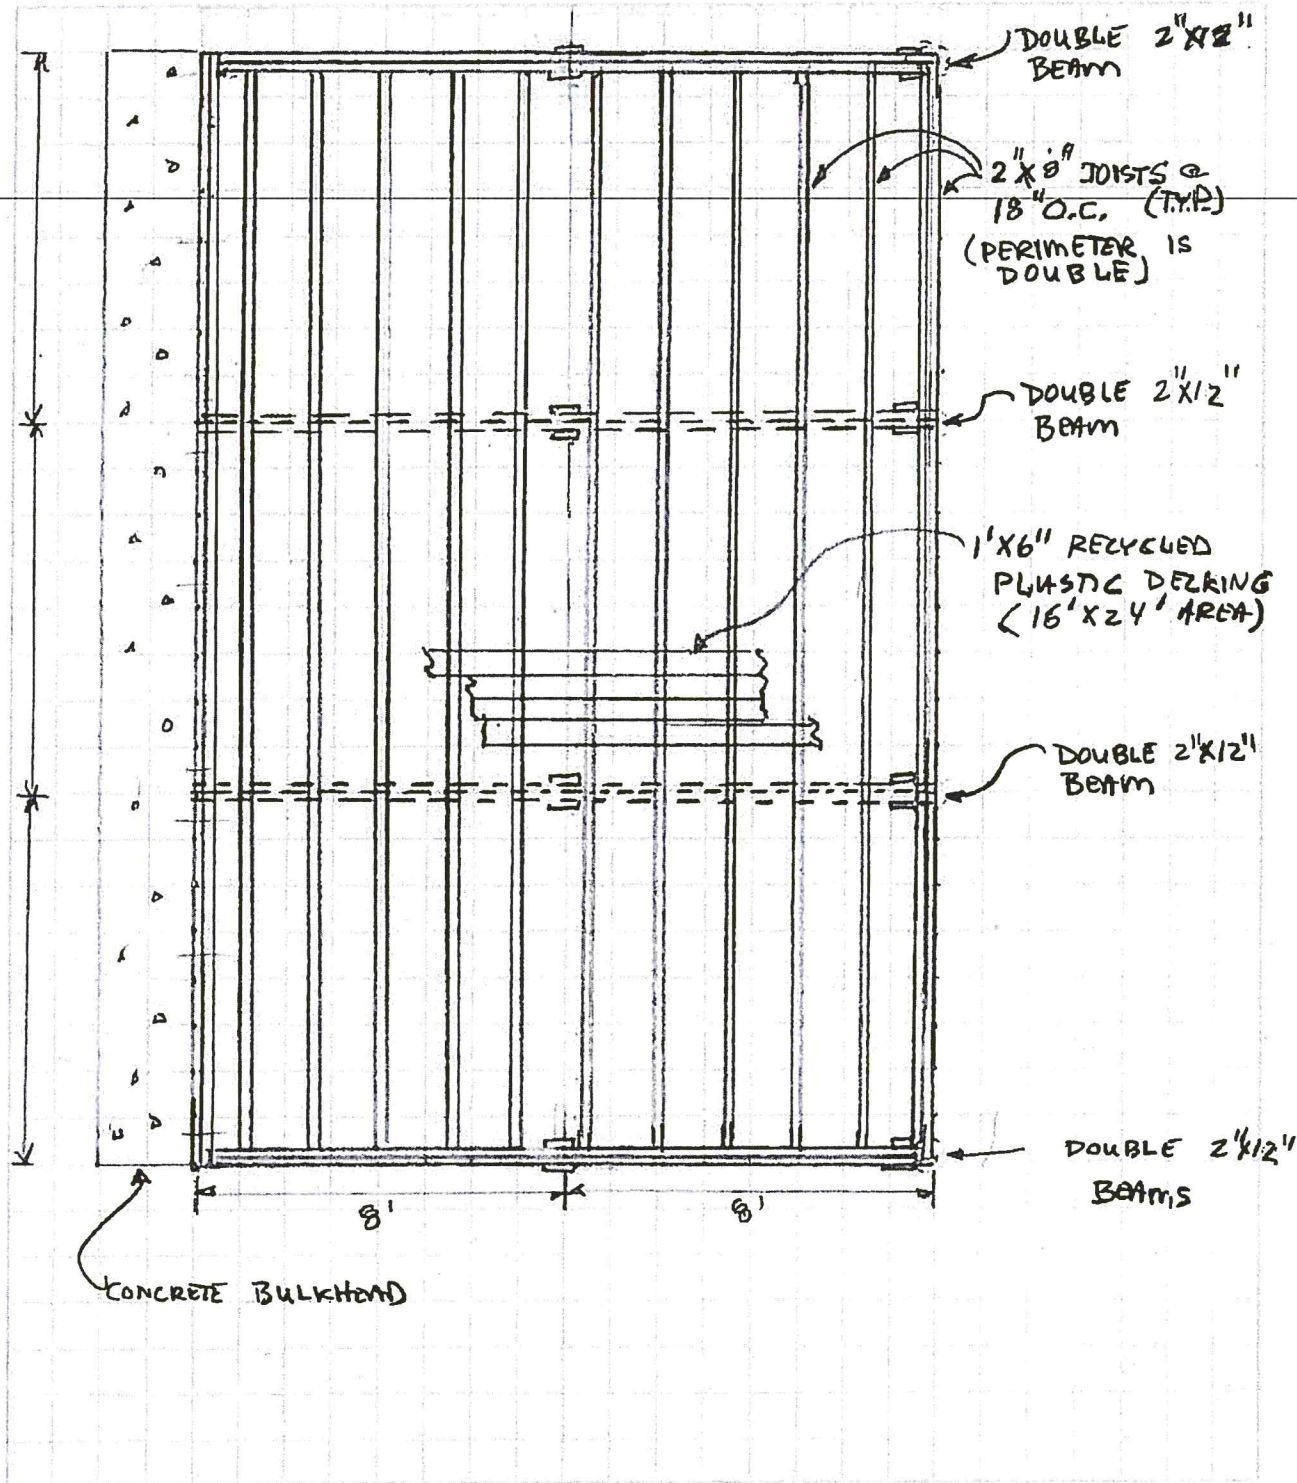 DOUBLE 2"X12"
BEAM
2"X8" JOISTS @
18" O.C. (TYP.)
(PERIMETER IS
DOUBLE)
DOUBLE 2"X12"
BEAM
1'X6" RECYCLED
PLASTIC DECKING
(16'X24' AREA)
DOUBLE 2"X12"
BEAM
DOUBLE 2"X12"
BEAMS
8'
8'
CONCRETE BULKHEAD